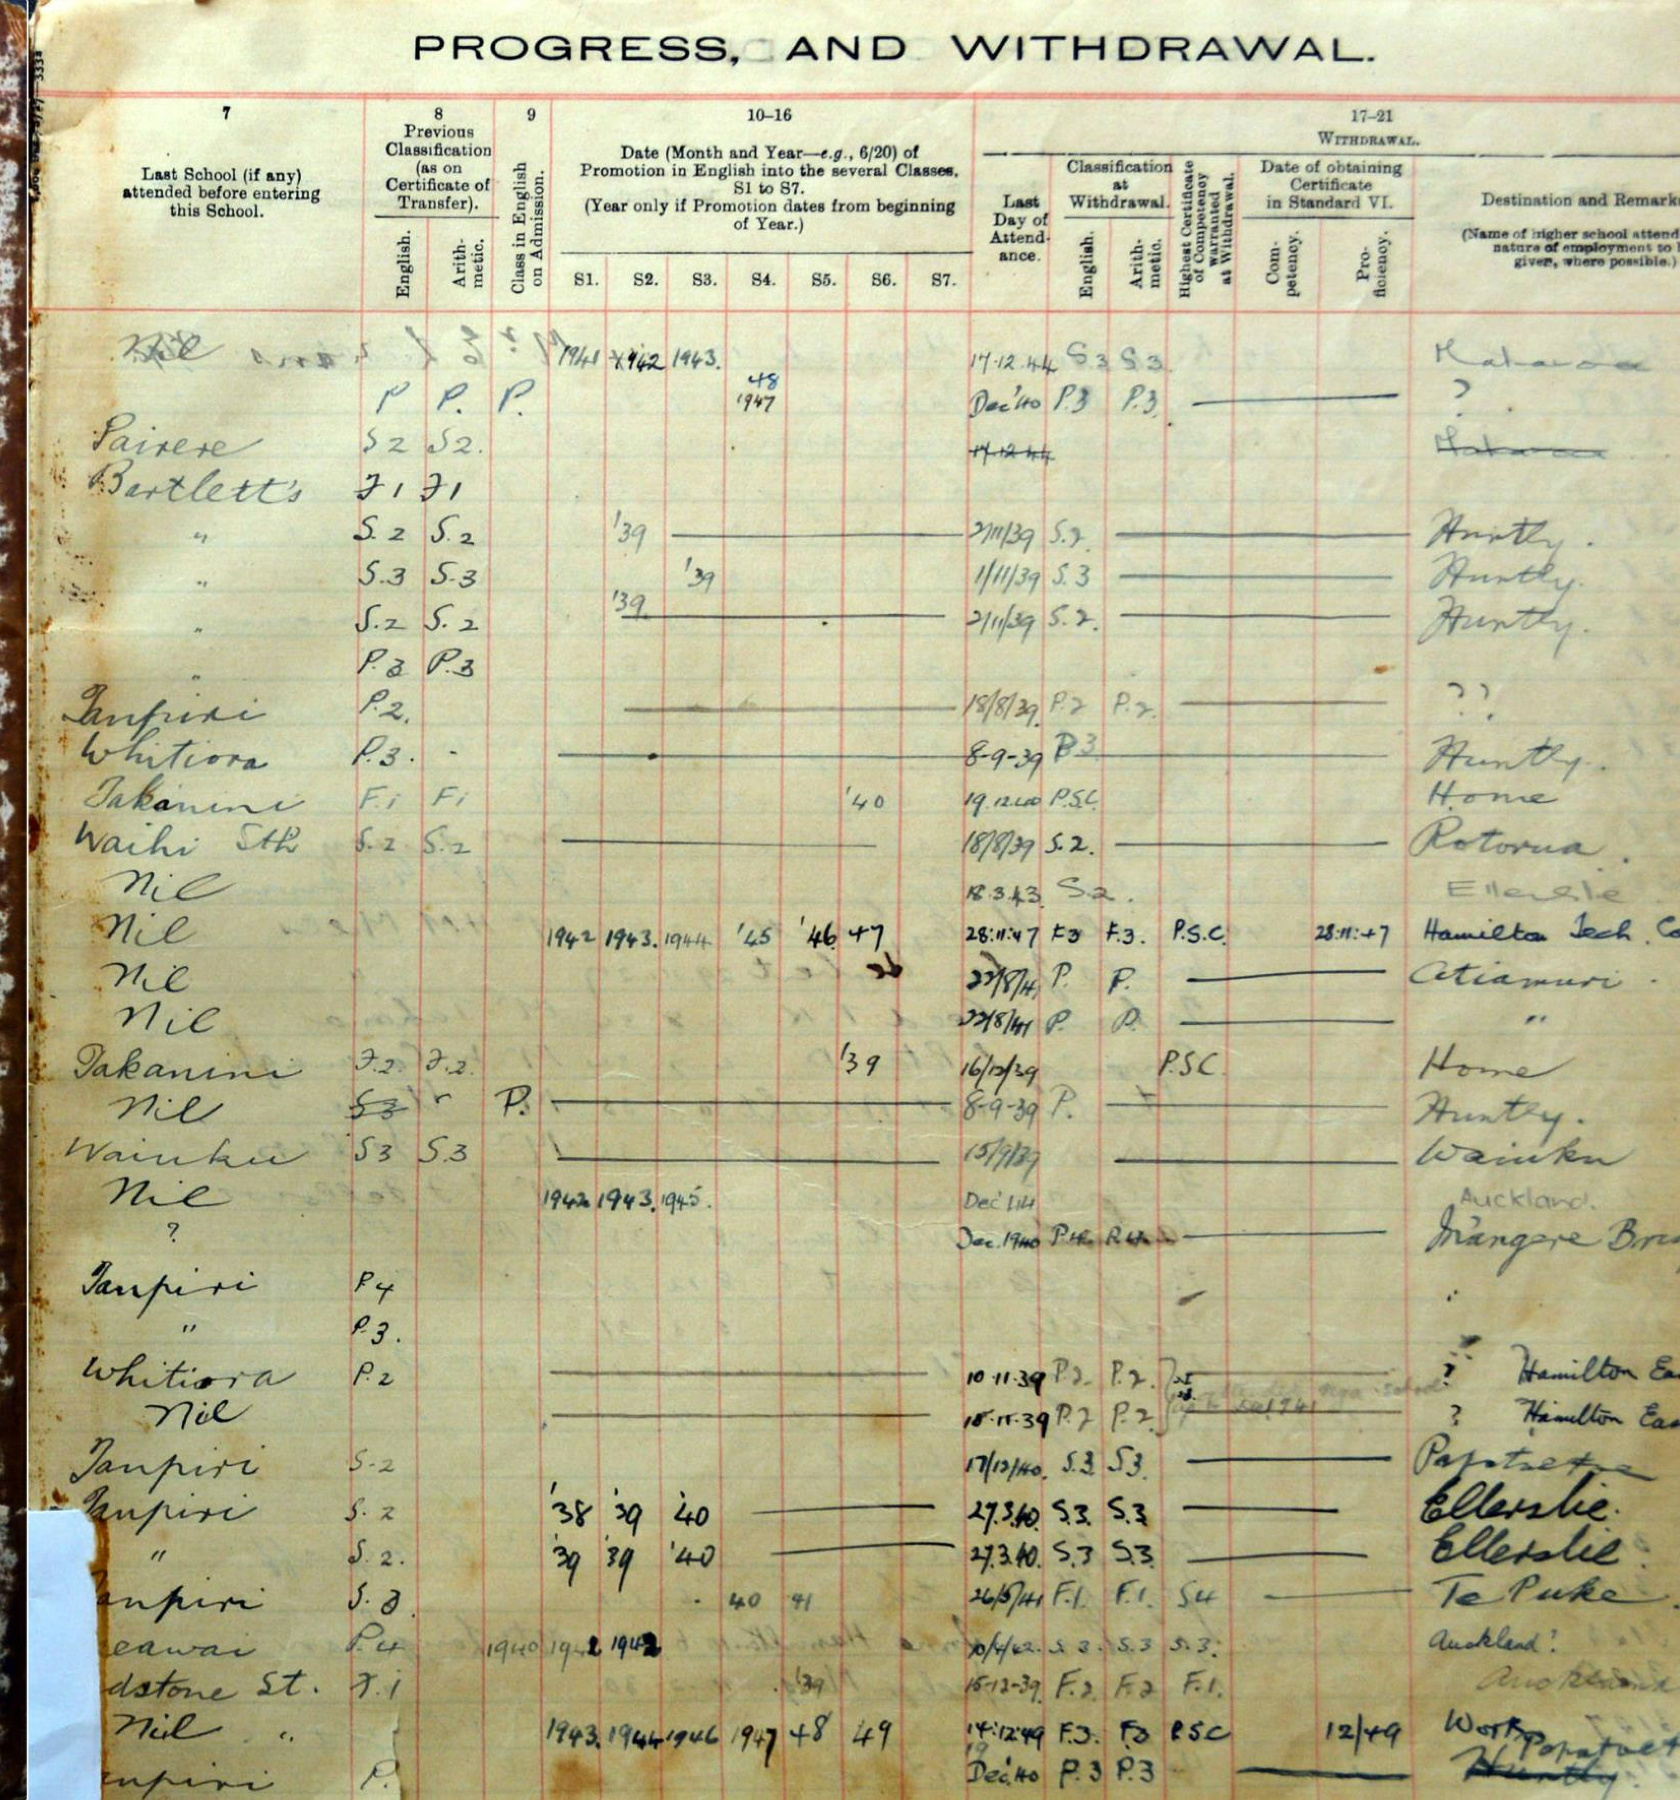 PROGRESS, AND WITHDRAWAL.
7 8 9 10–16 17–21
Last School (if any) attended before entering this School.
Previous Classification (as on Certificate of Transfer).
English. Arith-metic.
Class in English on Admission.
Date (Month and Year—e.g., 6/20) of Promotion in English into the several Classes, S1 to S7.
(Year only if Promotion dates from beginning of Year.)
S1. S2. S3. S4. S5. S6. S7.
WITHDRAWAL.
Last Day of Attend-ance.
Classification at Withdrawal.
English. Arith-metic.
Highest Certificate of Competency warranted at Withdrawal.
Date of obtaining Certificate in Standard VI.
Com-petency. Pro-ficiency.
Destination and Remark
(Name of higher school attend
nature of employment to
given, where possible.)
Nil 1941 1942 1943. 17.12.44 S3 S3
P P. P. 48 1947 Dec '40 P.3 P.3 ?
Pairere S2 S2. 17.12.44
Bartlett's F1 F1
" S.2 S.2 '39 2/11/39 S.2. Huntly.
" S.3 S.3 '39 1/11/39 S.3 Huntly.
" S.2 S.2 '39 2/11/39 S.2. Huntly.
" P.3 P.3
Taupiri P.2. 18/8/39. P.2 P.2. ??
Whitiora P.3. - 8-9-39 P3 Huntly.
Takanini F.1 F1 '40 19.12.40 P.S.C. Home
Waihi Sth S.2 S.2 18/8/39 S.2. Rotorua.
Nil 18.3.43 S.2. Ellerslie
Nil 1942 1943. 1944 '45 '46 47 28:11:47 F3 F.3. P.S.C. 28:11:47 Hamilton Tech. Co
Nil 22/8/41 P. P. Atiamuri.
Nil 22/8/41 P. P. "
Takanini F.2. F.2. '39 16/12/39 P.S.C. Home
Nil S3 P. 8-9-39 P. Huntly.
Waiuku S3 S.3 15/9/39 Waiuku
Nil 1942 1943. 1945. Dec '44 Auckland.
? Dec. 1940 P.4 P.4 Mangere Bri
Taupiri P4
" P.3.
Whitiora P.2 10.11.39 P.2. P.2. ? Hamilton Ea
Nil 10.11.39 P.2 P.2 ? Hamilton Eas
Taupiri S.2 17/12/40. S.3 S3.
Taupiri S.2 '38 '39 '40 27.3.40. S.3. S.3 Ellerslie.
" S.2. '39 '39 '40 27.3.40. S.3 S.3 Ellerslie.
anpiri S.3. 40 41 26/5/41 F.1. F.1. S4 Te Puke.
eawai P.4 1940 1942 1942 10/4/42. S.3. S.3 S.3. Auckland?
dstone St. F.1 '39 15-12-39. F.2. F.2 F.1. Auckland
Nil " 1943. 1944 1946 1947 48 49 14:12:49 F.3. F3 P.S.C 12/49 Work
upiri P. Dec. '40 P.3 P.3 Huntly.